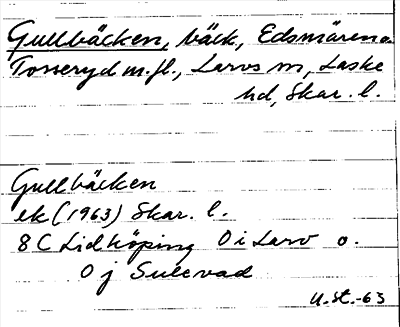 Gullbäcken, bäck, Edsmären o.
Tosseryd m.fl., Larvs sn, Laske
hd, Skar. l.
Gullbäcken
ek (1963) Skar. l.
8 C Lidköping 0 i Larv o.
0 j Sulevad
U.St.-63